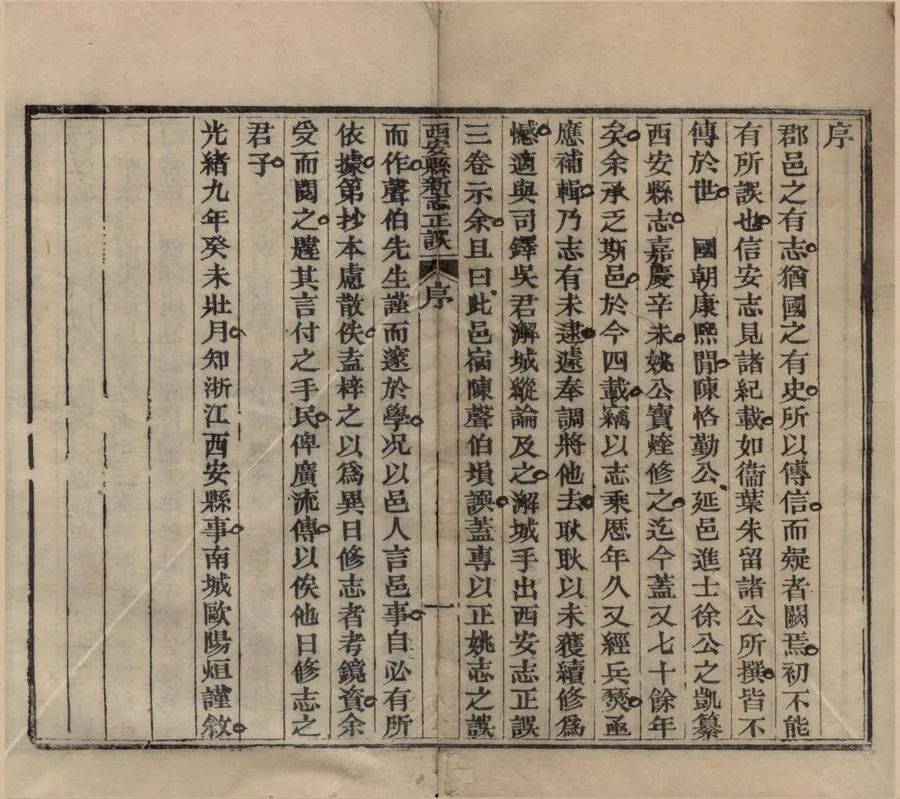 序
郡邑之有志猶國之有史所以傳信而疑者闕焉初不能
有所誤也信安志見諸紀載如衞葉朱留諸公所撰皆不
傳於世　國朝康熙閒陳恪勤公延邑進士徐公之凱纂
西安縣志嘉慶辛未姚公寶煃修之迄今蓋又七十餘年
矣余承乏斯邑於今四載竊以志乘歷年久又經兵燹亟
應補輯乃志有未逮遽奉調將他去耿耿以未獲續修爲
憾適與司鐸吳君澥城縱論及之澥城手出西安志正誤
三卷示余且曰此邑宿陳聲伯塤誤蓋専以正姚志之誤
西安縣新志正誤　序　一
而作聲伯先生謹而邃於學况以邑人言邑事自必有所
依據第抄本慮散佚盍梓之以爲異日修志者考鏡資余
受而閱之韙其言付之手民俾廣流傳以俟他日修志之
君子
光緒九年癸未壯月知浙江西安縣事南城歐陽烜謹敘